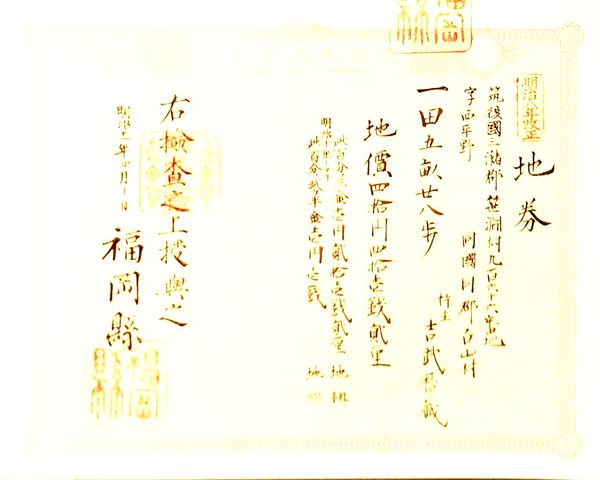 大日本帝國
明治八年改正
地券
筑後國三潴郡笹淵村九百六十六番地
字西平野
同國同郡白山村
一田五畝廿八歩
持主
吉武
地價四拾円四拾壱銭貳厘
此百分三金壱円貳拾壱銭貳厘 地租
明治十年ヨリ
此百分貳ヶ半金壱円壱銭 地租
右検査之上授與之
明治十一年四月十日
福岡縣